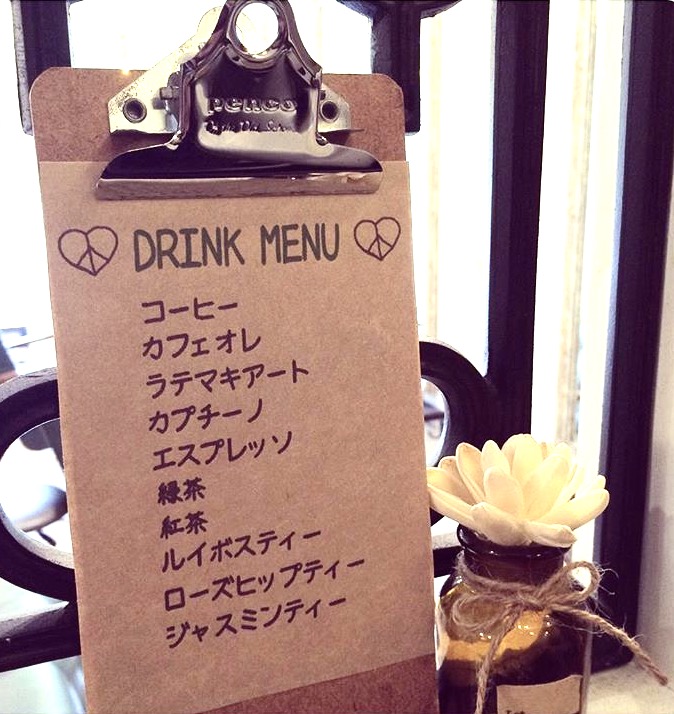 penco
DRINK MENU
コーヒー
カフェオレ
ラテマキアート
カプチーノ
エスプレッソ
緑茶
紅茶
ルイボスティー
ローズヒップティー
ジャスミンティー